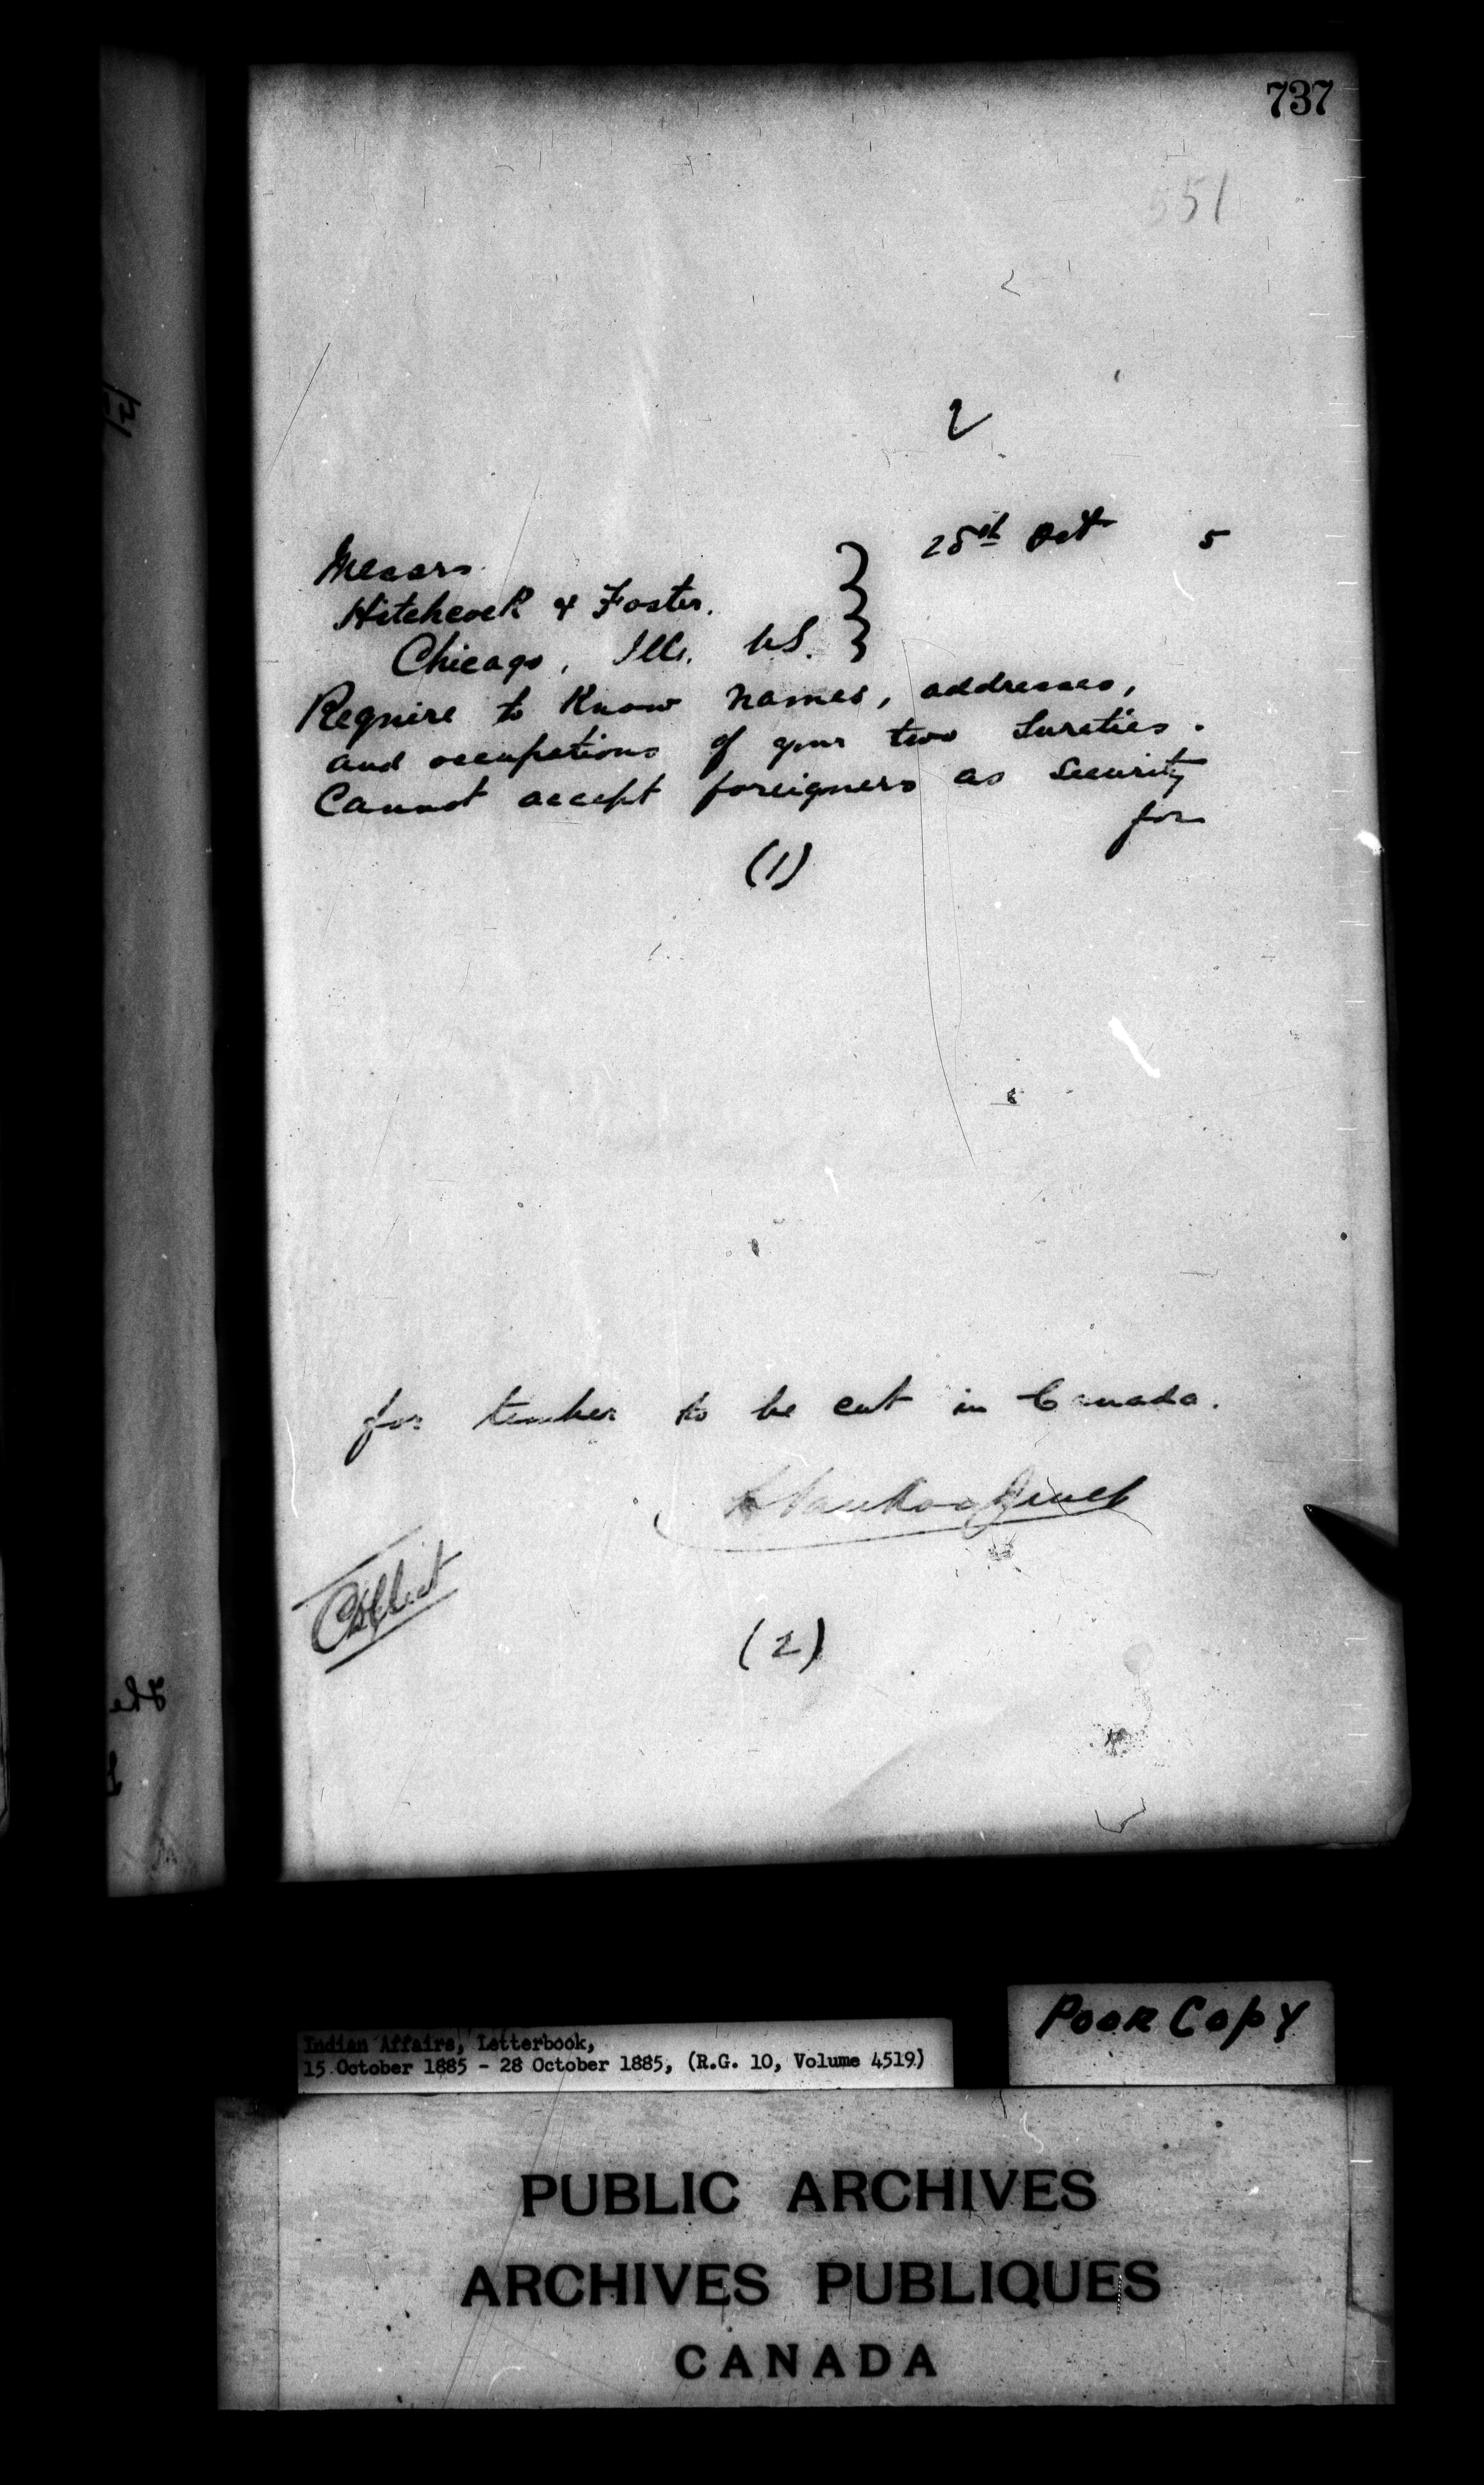 737
551
2
28th Oct 5
Messrs.
Hitchcock & Foster.
Chicago, Ills. U.S.
Require to Know names, addresses,
and occupations of your two Sureties.
Cannot accept foreigners as Security
for
(1)
for timber to be cut in Canada.
L VanKoughnet
Collect
(2)
The
Indian Affairs, Letterbook,
15 October 1885 - 28 October 1885, (R.G. 10, Volume 4519)
Poor Copy
PUBLIC ARCHIVES
ARCHIVES PUBLIQUES
CANADA